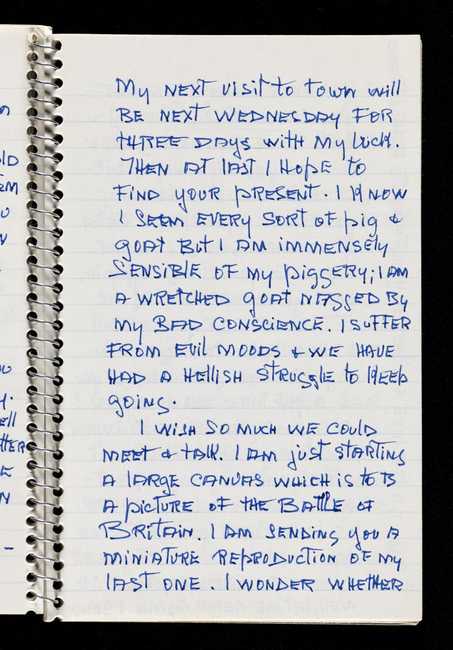 My next visit to town will
be next Wednesday for
three days with my luck.
Then at last I hope to
find your present. I know
I seem every sort of pig &
goat but I am immensely
sensible of my piggery; I am
a wretched goat nagged by
my bad conscience. I suffer
from evil moods & we have
had a hellish struggle to keep
going.
I wish so much we could
meet & talk. I am just starting
a large canvas which is to B
a picture of the Battle of
Britain. I am sending you a
miniature reproduction of my
last one. I wonder whether